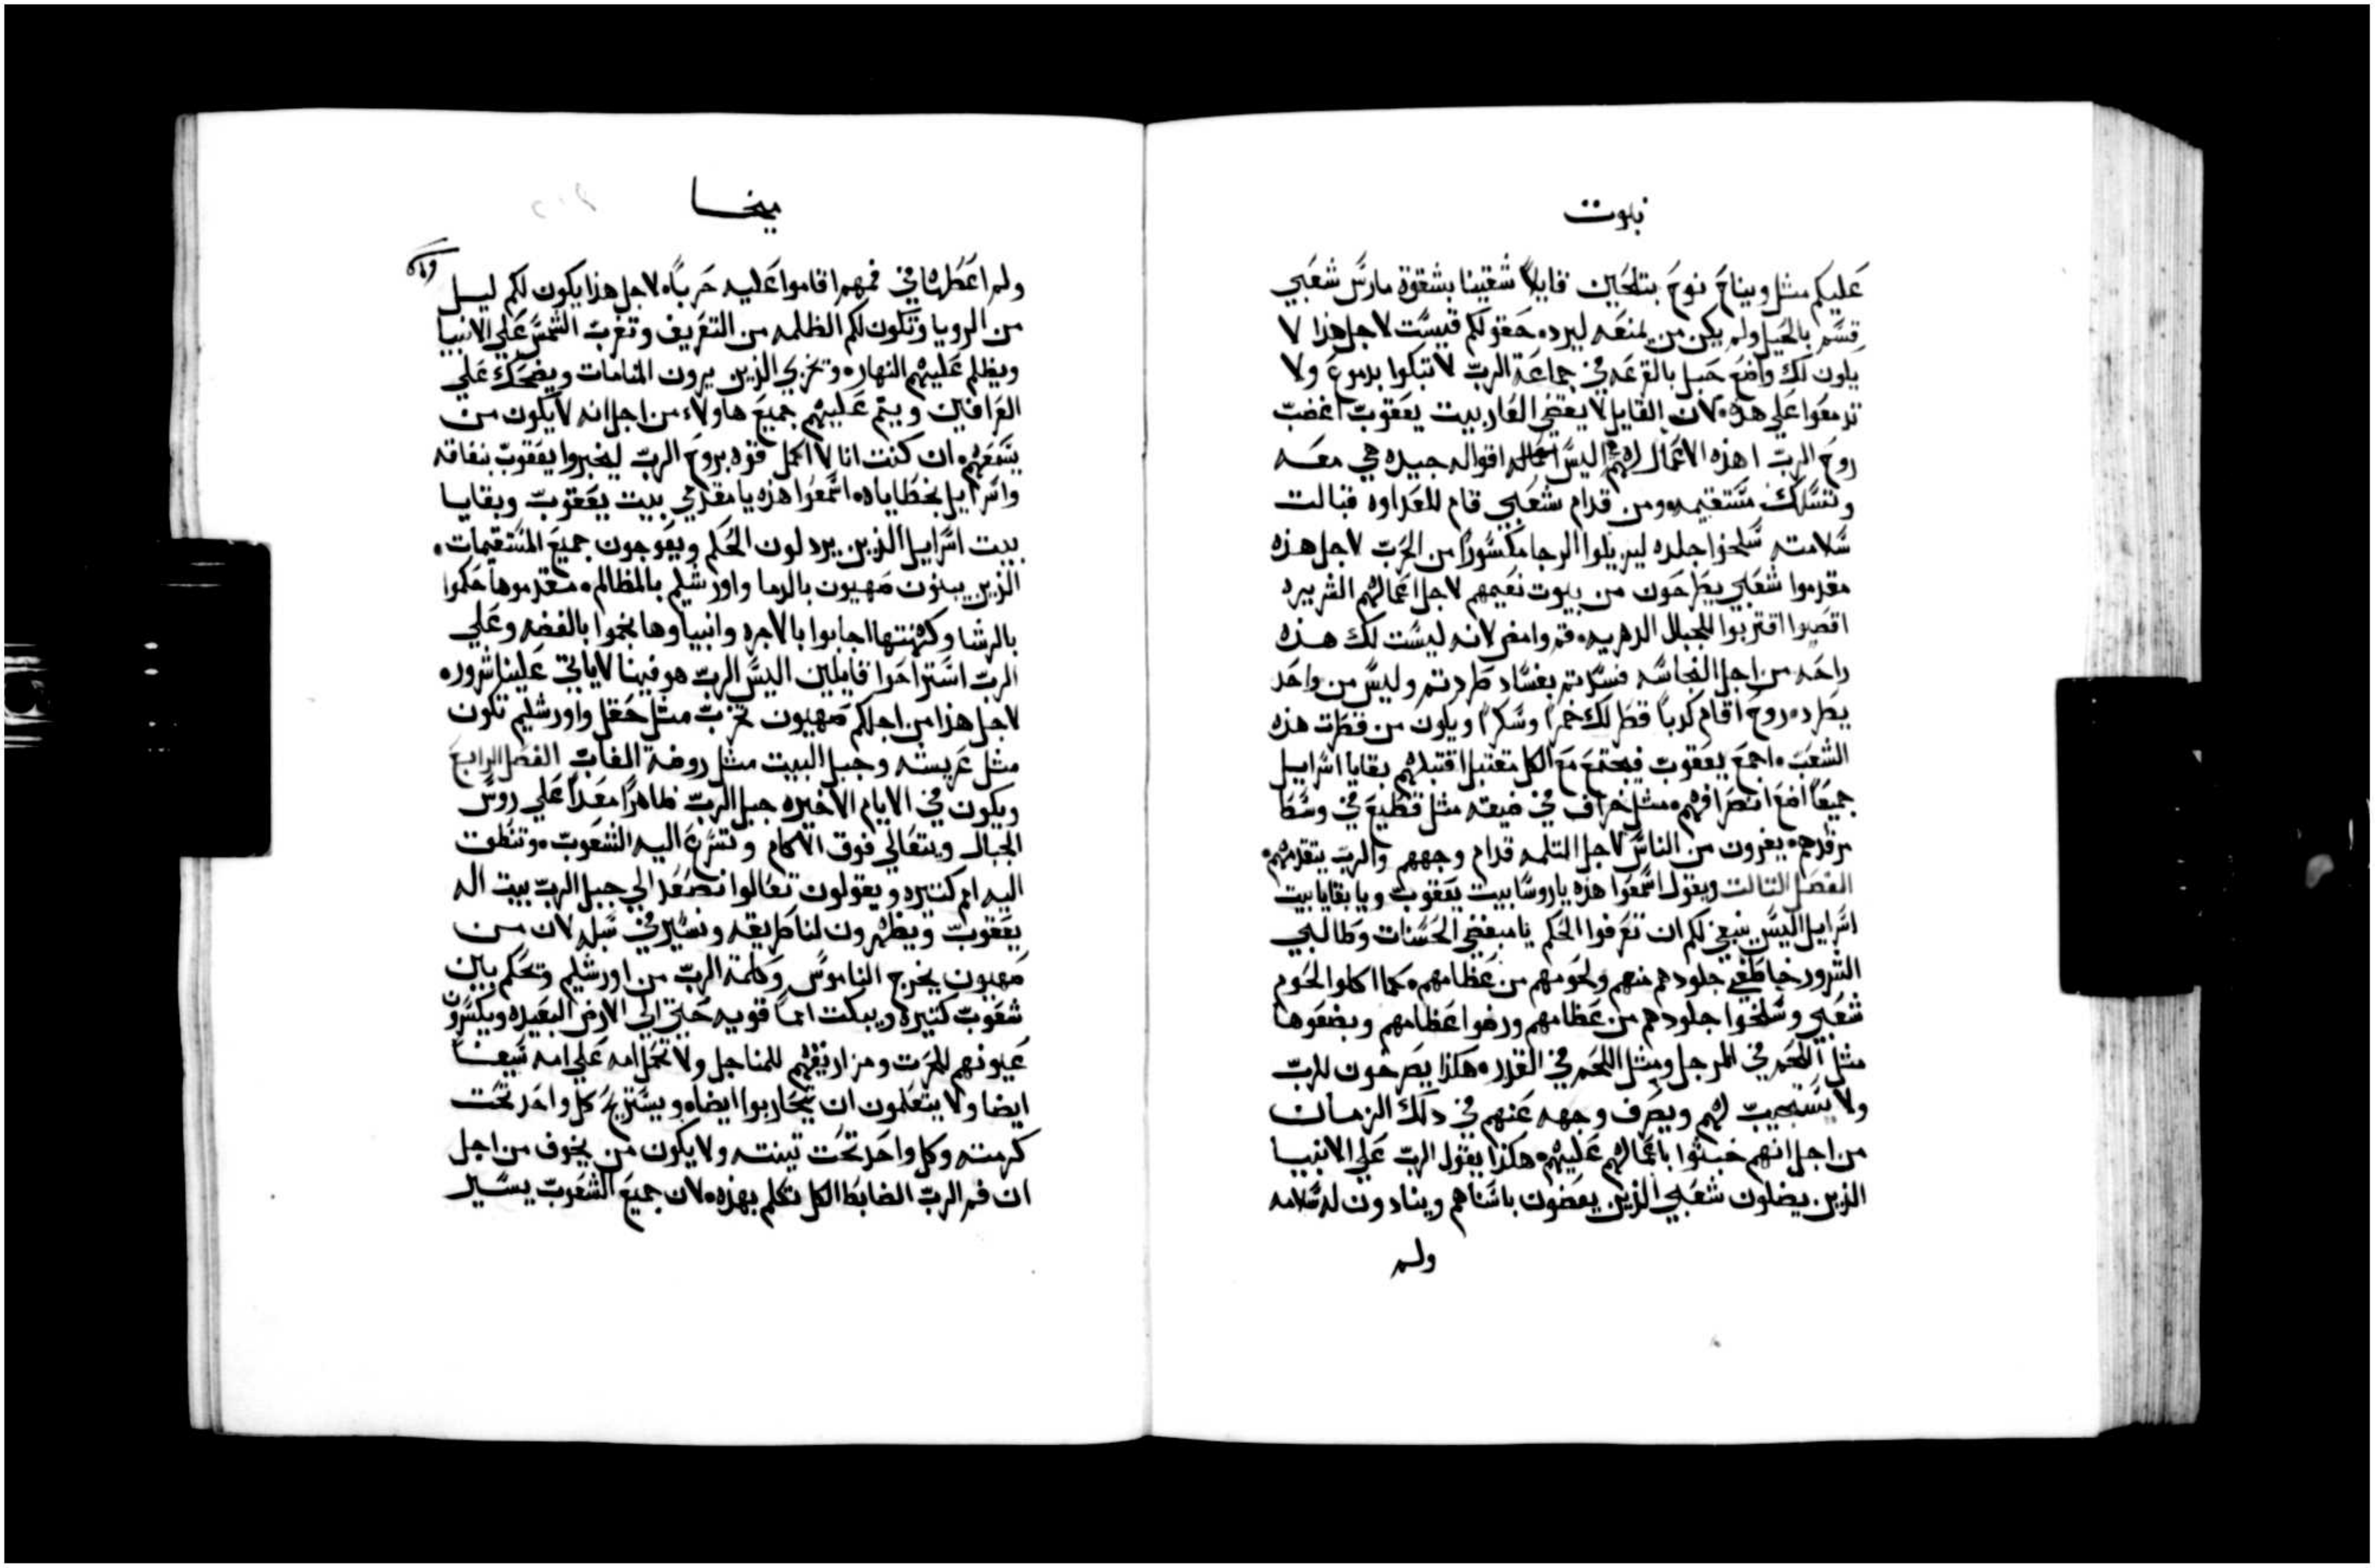 نبوت
عليكم مثل ويناح نوح بتلحين قايلاً شقينا بشقوة مارس شعبي
قسم بالحبل ولم يكن من يمنعه ليرده حقولكم قيست لاجل هذا لا
يكون لك واضع حبل بالقرعه في جماعة الرب لا تبكوا بدموع ولا
تدمعوا على هذه لان القايل لا يقضي العار بيت يعقوب اغضب
روح الرب اهذه الاعمال لهم هي اليس اقواله جيده هي معه
وتسلك مستقيمه ومن قدام شعبي قام للعداوه قبالت
سلامته سلخوا جلده ليزيلوا الرجا مكسوراً من الحرب لاجل هذه
مقدموا شعبي يطرحون من بيوت نعيمهم لاجل اعمالهم الشريره
اقصوا اقتربوا للجبال الدهريه قم وامض لانه ليست لك هذه
راحه من اجل النجاسه فسدتم بفساد طردتم وليس من واحد
يطرده روح اقام كدباً قطر لك خمراً وسكراً ويكون من قطرت هذه
الشعب اجمع يعقوب فيجتمع مع الكل مقتبل اقتبلهم بقايا اسراييل
جميعاً اضع انصرافهم مثل خراف في ضيقه مثل قطيع في وسط
مرقدهم يفرون من الناس لاجل الثلمه قدام وجههم والرب يتقدمهم
الفصل التالت ويقول اسمعوا هذه ياروسا بيت يعقوب ويا بقايا بيت
اسراييل اليس ينبغي لكم ان تعرفوا الحكم يا مبغضي الحسنات وطالبي
الشرور خاطفي جلودهم منهم ولحومهم من عظامهم كما اكلوا لحوم
شعبي وسلخوا جلودهم من عظامهم ورضوا عظامهم وبضعوها
مثل اللحم في المرجل ومثل اللحم في القدره هكذا يصرخون للرب
ولا يستجيب لهم ويصرف وجهه عنهم في دلك الزمان
من اجل انهم خبثوا باعمالهم عليهم هكذا يقول الرب على الانبيا
الذين يضلون شعبي الذين يعضون باسنانهم وينادون له سلامه
ولم
ميخا
ولم اعطها في فمهم اقاموا عليه حرباً لاجل هذا يكون لكم ليل
من الرويا وتكون لكم الظلمه من التعريف وتغرب الشمس على الانبيا
ويظلم عليهم النهار وتخزي الذين يرون المنامات ويضحك على
العرافين ويتم عليهم جميع هاولاء من اجل انه لا يكون من
يسمعهم ان كنت انا لا اكمل قوه بروح الرب ليخبروا يعقوب بنفاقه
واسراييل بخطاياه اسمعوا هذه يا مقدمي بيت يعقوب وبقايا
بيت اسراييل الذين يردلون الحكم ويعوجون جميع المستقيمات
الذين يبنون صهيون بالدما واورشليم بالمظالم مقدموها حكموا
بالرشا وكهنتها اجابوا بالاجره وانبياوها نجموا بالفضه وعلى
الرب استراحوا قايلين اليس الرب هو فينا لا ياتي علينا شرور
لاجل هذا من اجلكم صهيون تحرث مثل حقل واورشليم تكون
مثل عريسه وجبل البيت مثل روضة الغاب الفصل الرابع
ويكون في الايام الاخيره جبل الرب ظاهراً معداً على روس
الجبال ويتعالى فوق الاكام وتسرع اليه الشعوب وتنطق
اليه امم كتيره ويقولون تعالوا نصعد الى جبل الرب بيت اله
يعقوب ويظهرون لنا طريقه ونسير في سبله لان من
صهيون يخرج الناموس وكلمة الرب من اورشليم وتحكم بين
شعوب كتيره ويبكت امماً قويه حتى الى الارض البعيده ويكسرون
سيوفهم للحرت ومزاريقهم للمناجل ولا تحمل امه على امه سيفاً
ايضا ولا يتعلمون ان يتحاربوا ايضاه ويستريح كل واحد تحت
كرمته وكل واحد تحت تينته ولا يكون من يخوف من اجل
ان فم الرب الضابط الكل تكلم بهذه لان جميع الشعوب يسير